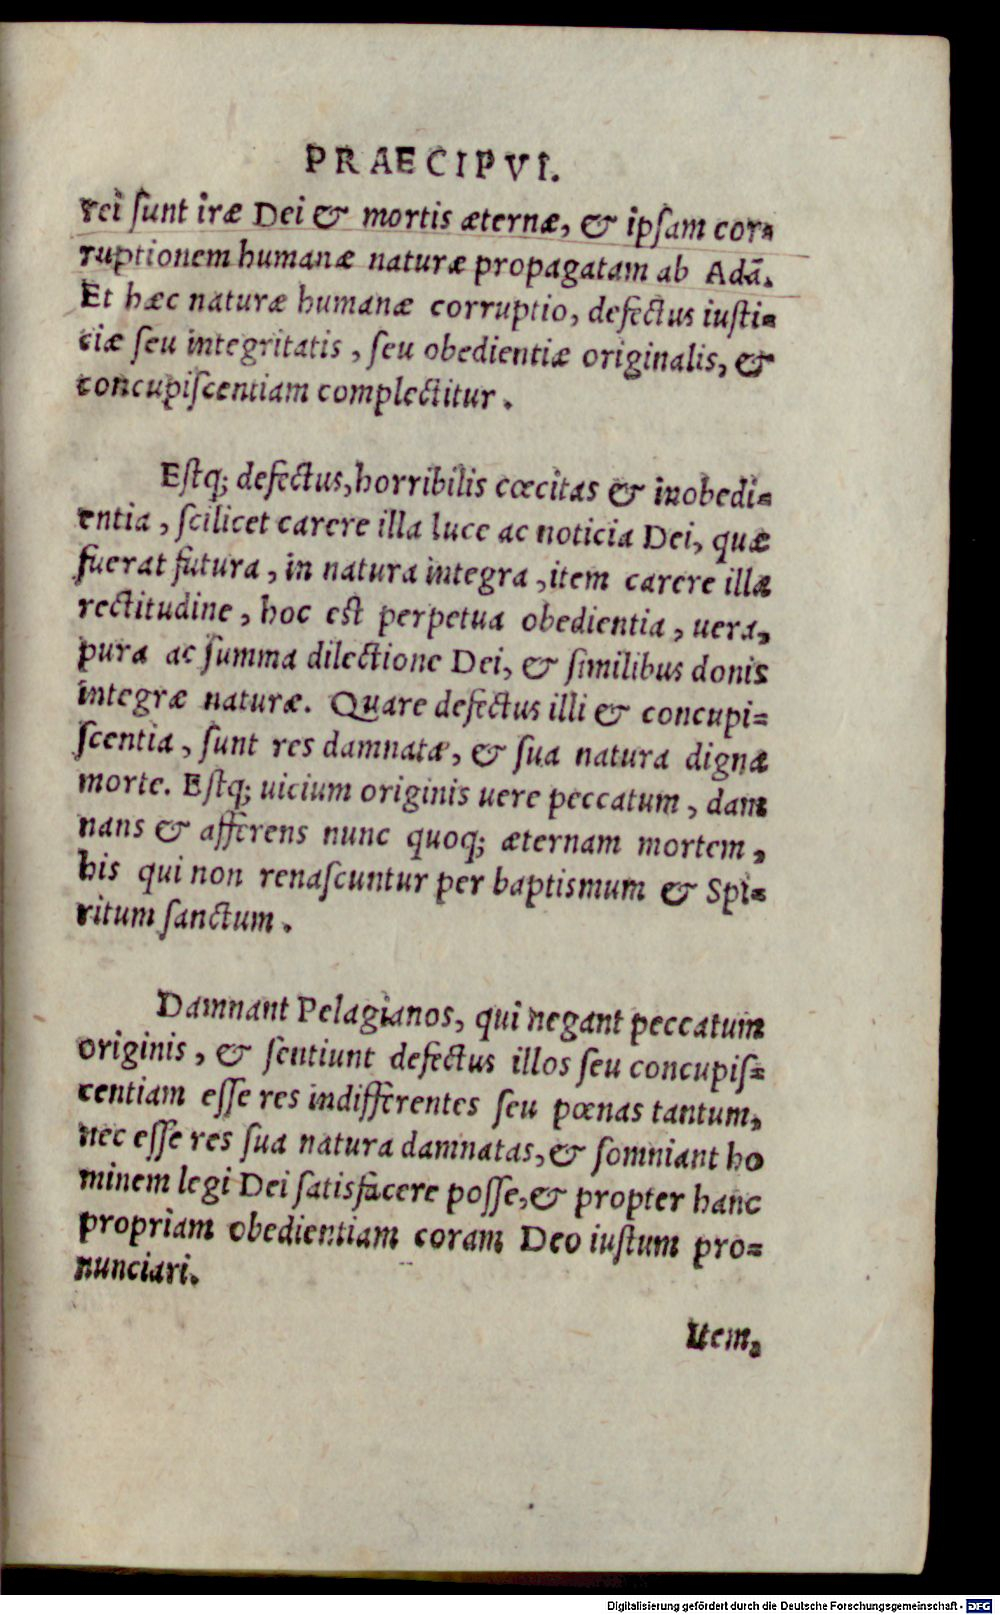 PRAECIPVI.
rei ſunt iræ Dei & mortis æternæ, & ipſam cor=
ruptionem humanæ naturæ propagatam ab Adã.
Et hæc naturæ humanæ corruptio, defectus iuſti=
ciæ ſeu integritatis, ſeu obedientiæ originalis, &
concupiſcentiam complectitur.
Eſtq; defectus, horribilis cœcitas & inobedi=
entia, ſcilicet carere illa luce ac noticia Dei, quæ
fuerat futura, in natura integra, item carere illa
rectitudine, hoc est perpetua obedientia, uera,
pura ac ſumma dilectione Dei, & ſimilibus donis
integræ naturæ. Quare defectus illi & concupi=
ſcentia, ſunt res damnatæ, & ſua natura dignæ
morte. Eſtq; uicium originis uere peccatum, dam
nans & afferens nunc quoq; æternam mortem,
his qui non renaſcuntur per baptismum & Spi=
ritum ſanctum.
Damnant Pelagianos, qui negant peccatum
originis, & ſentiunt defectus illos ſeu concupiſ=
centiam eſſe res indifferentes ſeu pœnas tantum,
nec eſſe res ſua natura damnatas, & ſomniant ho
minem legi Dei ſatisfacere poſſe, & propter hanc
propriam obedientiam coram Deo iuſtum pro=
nunciari.
Item,
Digitalisierung gefördert durch die Deutsche Forschungsgemeinschaft - DFG